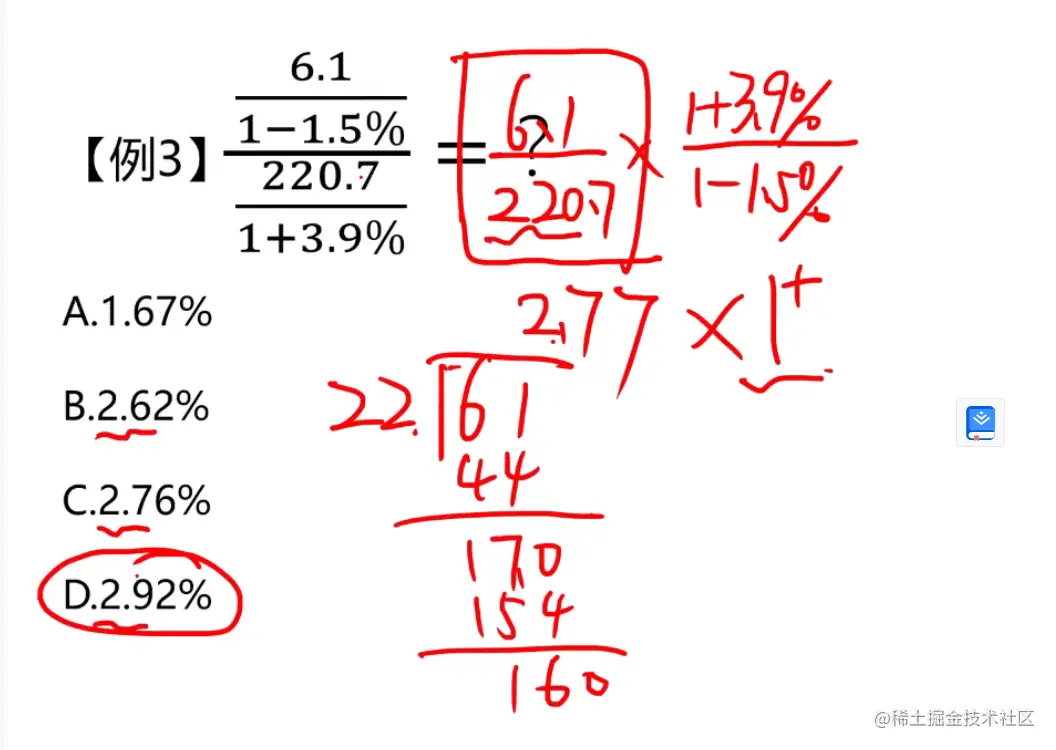 6.1
1−1.5%
【例3】
220.7
1+3.9%
= ?
6.1
220.7
×
1+3.9%
1−1.5%
A.1.67%
B.2.62%
C.2.76%
D.2.92%
2.77 × 1+
22. 61
44
17.0
154
160
@稀土掘金技术社区